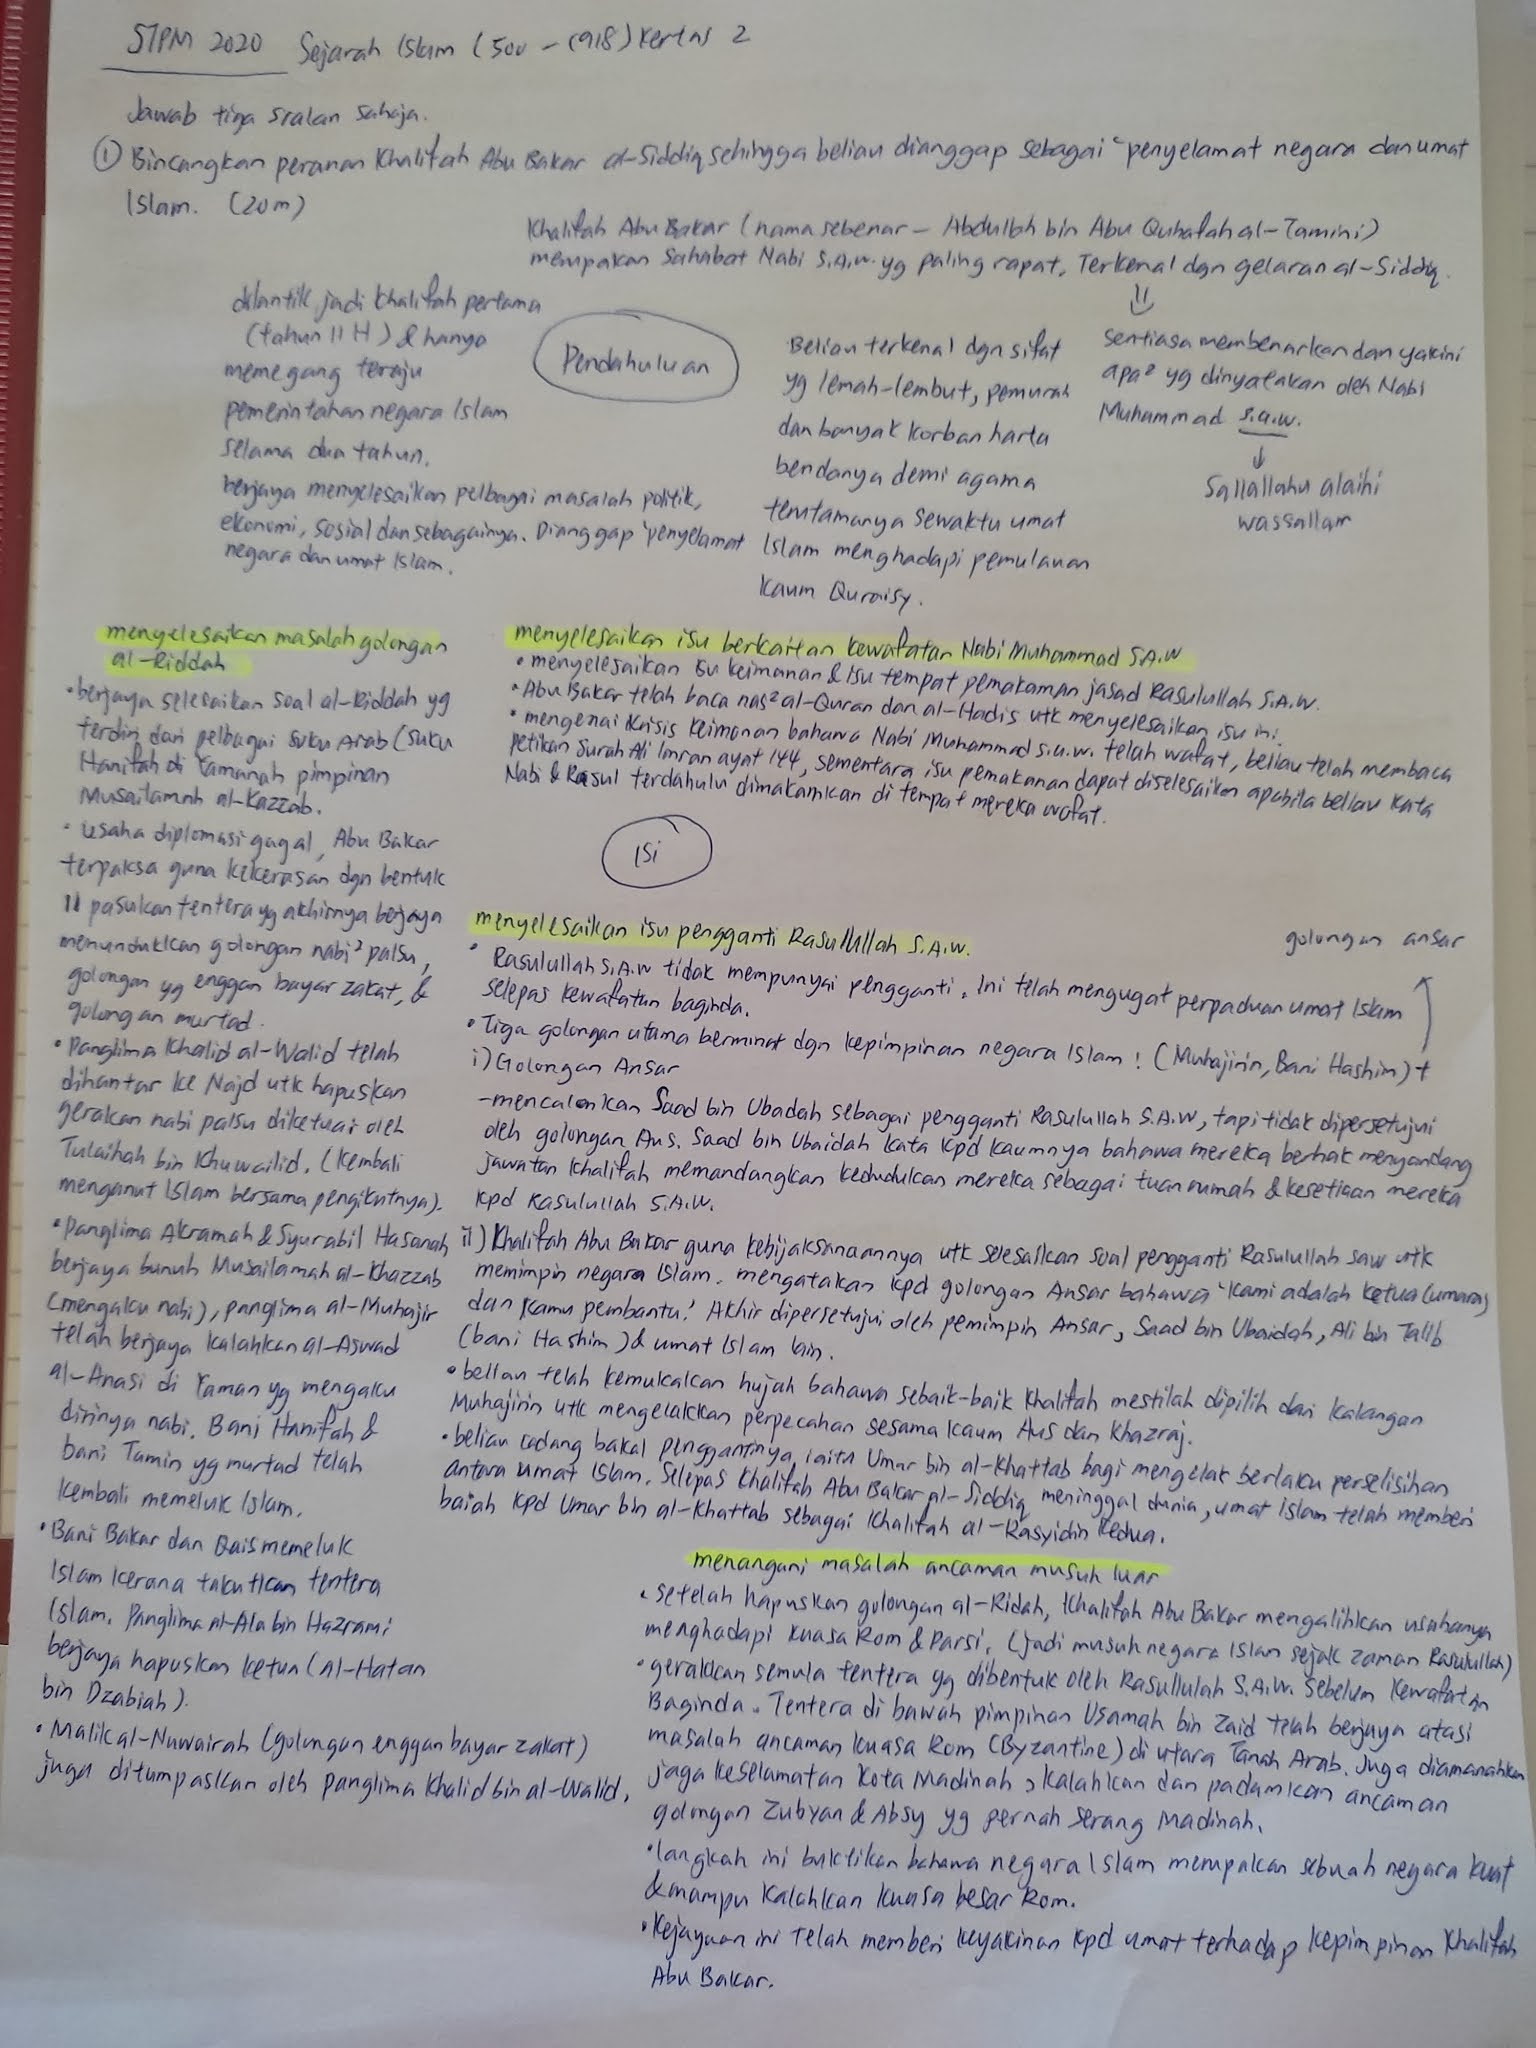 STPM 2020 Sejarah Islam (500 - 1918) Kertas 2
Jawab tiga soalan sahaja.
① Bincangkan peranan Khalifah Abu Bakar al-Siddiq sehingga beliau dianggap sebagai "penyelamat negara dan umat
Islam. (20m)
Khalifah Abu Bakar (nama sebenar - Abdullah bin Abu Quhafah al-Tamimi)
merupakan Sahabat Nabi S.A.W. yg paling rapat, Terkenal dgn gelaran al-Siddiq.
Sentiasa membenarkan dan yakini
apa² yg dinyatakan oleh Nabi
Muhammad s.a.w.
Sallallahu alaihi
wassallam
Pendahuluan
Beliau terkenal dgn sifat
yg lemah-lembut, pemurah
dan banyak korban harta
bendanya demi agama
terutamanya sewaktu umat
Islam menghadapi pemulauan
kaum Quraisy.
dilantik jadi khalifah pertama
(tahun 11 H) & hanya
memegang teraju
pemerintahan negara Islam
selama dua tahun.
berjaya menyelesaikan pelbagai masalah politik,
ekonomi, sosial dan sebagainya. Dianggap 'penyelamat
negara dan umat Islam.
menyelesaikan isu berkaitan kewafatan Nabi Muhammad S.A.W
• menyelesaikan isu keimanan & isu tempat pemakaman jasad Rasulullah S.A.W.
• Abu Bakar telah baca nas² al-Quran dan al-Hadis utk menyelesaikan isu ini.
• mengenai krisis keimanan bahawa Nabi Muhammad s.a.w. telah wafat, beliau telah membaca
petikan Surah Ali Imran ayat 144, sementara isu pemakanan dapat diselesaikan apabila beliau kata
Nabi & Rasul terdahulu dimakamkan di tempat mereka wafat.
Isi
menyelesaikan masalah golongan
al-Riddah
• berjaya selesaikan soal al-Riddah yg
terdiri dari pelbagai suku Arab (suku
Hanifah di Yamamah pimpinan
Musailamah al-Kazzab.
• usaha diplomasi gagal, Abu Bakar
terpaksa guna kekerasan dgn bentuk
11 pasukan tentera yg akhirnya berjaya
menundukkan golongan nabi² palsu,
golongan yg enggan bayar zakat, &
golongan murtad.
• Panglima Khalid al-Walid telah
dihantar ke Najd utk hapuskan
gerakan nabi palsu diketuai oleh
Tulaihah bin Khuwailid. (kembali
menganut Islam bersama pengikutnya).
• Panglima Akramah & Syurabil Hasanah
berjaya bunuh Musailamah al-Khazzab
(mengaku nabi), panglima al-Muhajir
telah berjaya kalahkan al-Aswad
al-Anasi di Yaman yg mengaku
dirinya nabi. Bani Hanifah &
bani Tamin yg murtad telah
kembali memeluk Islam.
• Bani Bakar dan Qais memeluk
Islam kerana takutkan tentera
Islam. Panglima al-Ala bin Hazrami
berjaya hapuskan ketua (Al-Hatan
bin Dzabiah).
• Malik al-Nuwairah (golongan enggan bayar zakat)
juga ditumpaskan oleh Panglima Khalid bin al-Walid.
menyelesaikan isu pengganti Rasulullah S.A.W.
• Rasulullah S.A.W tidak mempunyai pengganti. Ini telah mengugat perpaduan umat Islam
selepas kewafatan baginda.
golongan ansar
• Tiga golongan utama berminat dgn kepimpinan negara Islam! (Muhajirin, Bani Hashim) +
i) Golongan Ansar
- mencalonkan Saad bin Ubadah sebagai pengganti Rasulullah S.A.W, tapi tidak dipersetujui
oleh golongan Aus. Saad bin Ubaidah kata kpd kaumnya bahawa mereka berhak menyandang
jawatan khalifah memandangkan kedudukan mereka sebagai tuan rumah & kesetiaan mereka
kpd Rasulullah S.A.W.
ii) Khalifah Abu Bakar guna kebijaksanaannya utk selesaikan soal pengganti Rasulullah saw utk
memimpin negara Islam. mengatakan kpd golongan Ansar bahawa 'Kami adalah ketua (umara)
dan kamu pembantu'. Akhir dipersetujui oleh pemimpin Ansar, Saad bin Ubaidah, Ali bin Talib
(bani Hashim) & umat Islam lain.
• beliau telah kemukakan hujah bahawa sebaik-baik Khalifah mestilah dipilih dari kalangan
Muhajirin utk mengelakkan perpecahan sesama kaum Aus dan Khazraj.
• beliau cadang bakal penggantinya iaitu Umar bin al-Khattab bagi mengelak berlaku perselisihan
antara umat Islam. Selepas Khalifah Abu Bakar al-Siddiq meninggal dunia, umat Islam telah memberi
baiah kpd Umar bin al-Khattab sebagai Khalifah al-Rasyidin kedua.
menangani masalah ancaman musuh luar
• setelah hapuskan golongan al-Ridah, Khalifah Abu Bakar mengalihkan usahanya
menghadapi kuasa Rom & Parsi. (jadi musuh negara Islam sejak zaman Rasulullah)
• gerakkan semula tentera yg dibentuk oleh Rasullulah S.A.W. sebelum kewafatan
Baginda. Tentera di bawah pimpinan Usamah bin Zaid telah berjaya atasi
masalah ancaman kuasa Rom (Byzantine) di utara Tanah Arab. Juga diamanahkan
jaga keselamatan Kota Madinah, kalahkan dan padamkan ancaman
golongan Zubyan & Absy yg pernah serang Madinah.
• langkah ini buktikan bahawa negara Islam merupakan sebuah negara kuat
& mampu kalahkan kuasa besar Rom.
• Kejayaan ini telah memberi keyakinan kpd umat terhadap kepimpinan Khalifah
Abu Bakar.